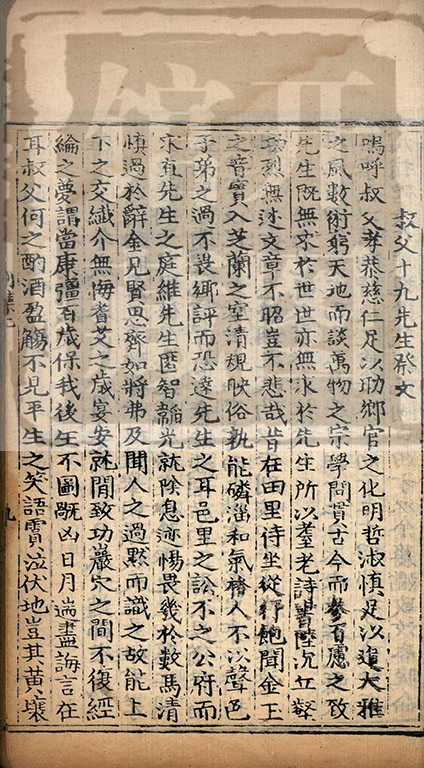 叔父十九先生祭文
嗚呼叔父孝恭慈仁足以助鄉官之化明哲淑慎足以還大雅
之風數術窮天地而談萬物之宗學問貫古今而參百慮之致
先生既無求於世世亦無求於先生所以耆老詩書陸沉丘壑
功烈無述文章不昭豈不悲哉昔在田里侍坐從行飽聞金玉
之音實入芝蘭之室清規映俗孰能磷淄和氣襲人不以聲色
子弟之過不畏鄉評而恐達先生之耳邑里之訟不之公府而
求直先生之庭維先生匿智韜光就陰息迹惕畏幾於數馬清
慎過於辭金見賢思齊如將弗及聞人之過默而識之故能上
下之交纖介無悔耆艾之歲宴安就閒致功巖穴之間不復經
綸之夢謂當康彊百歲保我後生不圖既凶日月遄盡誨言在
耳叔父何之酌酒盈觴不見平生之笑語實泣伏地豈其黃壤